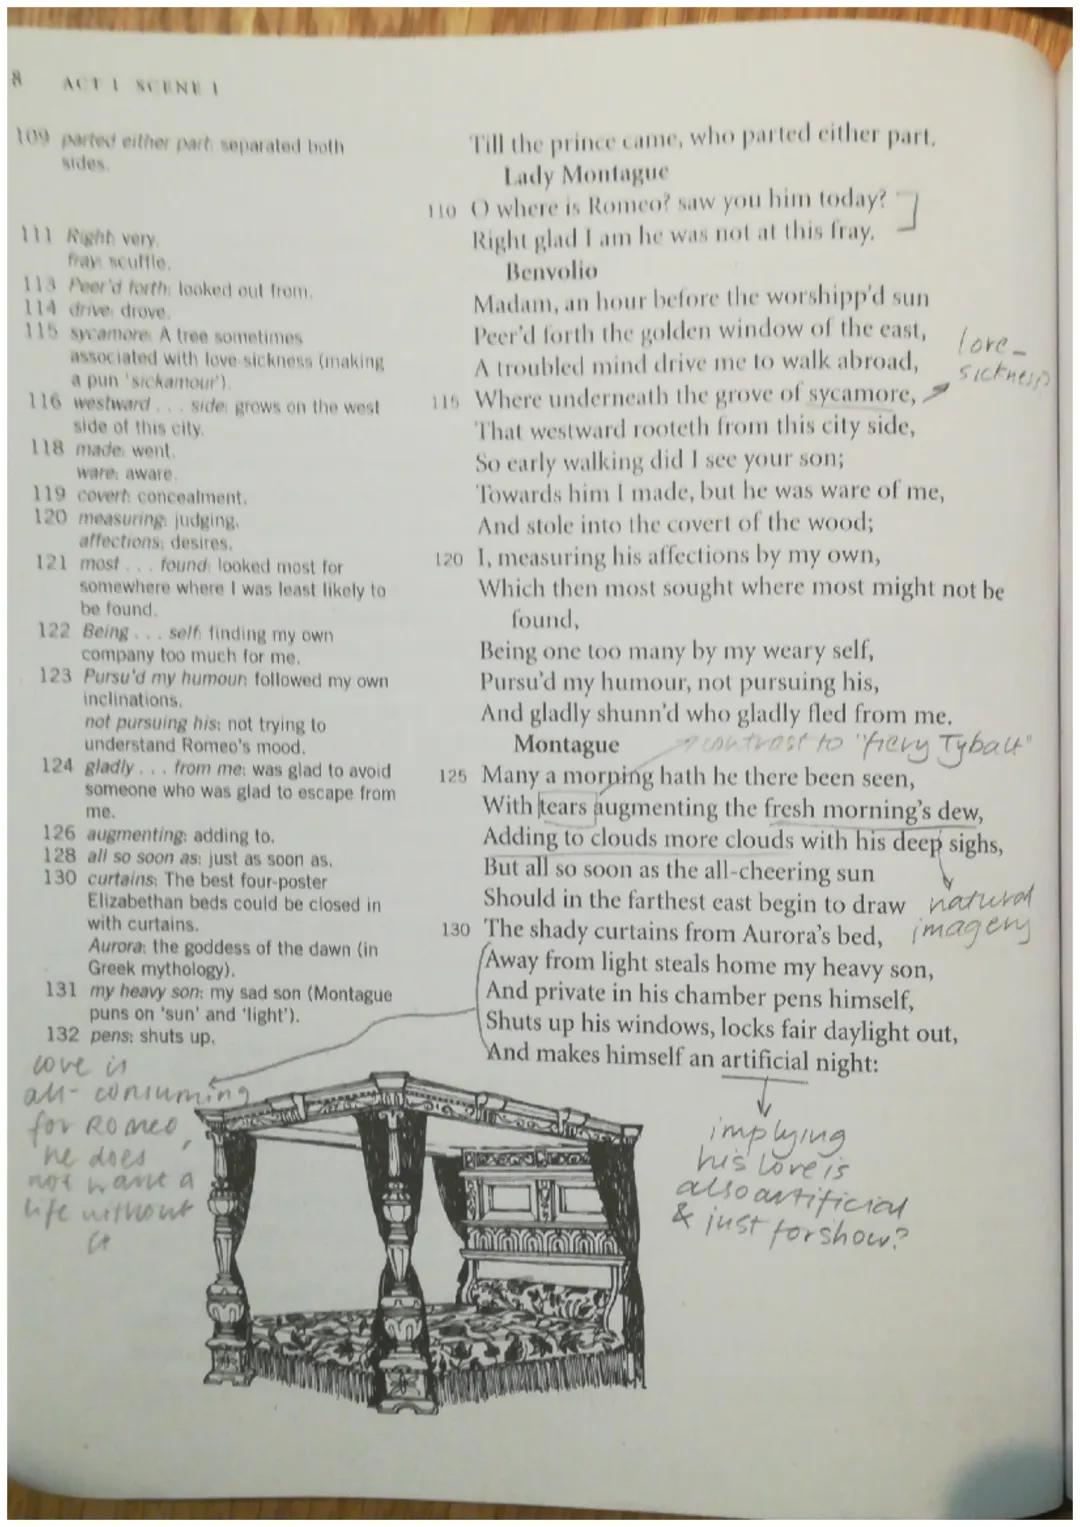 8 ACT I SCENE I
109 parted either part: separated both
sides.
111 Right: very.
fray: scuffle.
113 Peer'd forth: looked out from.
114 drive: drove.
115 sycamore: A tree sometimes
associated with love-sickness (making
a pun 'sickamour').
116 westward . . . side: grows on the west
side of this city.
118 made: went.
ware: aware.
119 covert: concealment.
120 measuring: judging.
affections: desires.
121 most . . . found: looked most for
somewhere where I was least likely to
be found.
122 Being . . . self: finding my own
company too much for me.
123 Pursu'd my humour: followed my own
inclinations.
not pursuing his: not trying to
understand Romeo's mood.
124 gladly . . . from me: was glad to avoid
someone who was glad to escape from
me.
126 augmenting: adding to.
128 all so soon as: just as soon as.
130 curtains: The best four-poster
Elizabethan beds could be closed in
with curtains.
Aurora: the goddess of the dawn (in
Greek mythology).
131 my heavy son: my sad son (Montague
puns on 'sun' and 'light').
132 pens: shuts up.
love is
all-consuming
for Romeo,
he does
not want a
life without
it
Till the prince came, who parted either part.
Lady Montague
110 O where is Romeo? saw you him today?
Right glad I am he was not at this fray.
Benvolio
Madam, an hour before the worshipp'd sun
Peer'd forth the golden window of the east,
A troubled mind drive me to walk abroad,
115 Where underneath the grove of sycamore,
love-
sickness?
That westward rooteth from this city side,
So early walking did I see your son;
Towards him I made, but he was ware of me,
And stole into the covert of the wood;
120 I, measuring his affections by my own,
Which then most sought where most might not be
found,
Being one too many by my weary self,
Pursu'd my humour, not pursuing his,
And gladly shunn'd who gladly fled from me.
Montague
contrast to "fiery Tybalt"
125 Many a morning hath he there been seen,
With tears augmenting the fresh morning's dew,
Adding to clouds more clouds with his deep sighs,
But all so soon as the all-cheering sun
Should in the farthest east begin to draw
natural
imagery
130 The shady curtains from Aurora's bed,
Away from light steals home my heavy son,
And private in his chamber pens himself,
Shuts up his windows, locks fair daylight out,
And makes himself an artificial night:
implying
his love is
also artificial
& just for show?